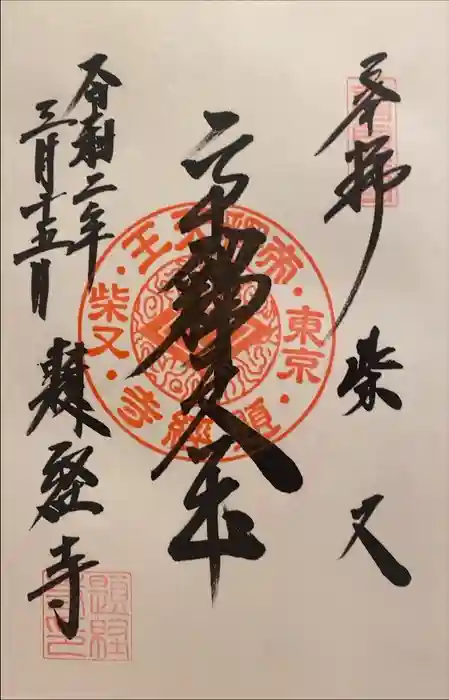 奉拝
柴又
帝釋天王
令和二年
三月十五日
題経寺
帝釋天王
東京
柴又
題經寺
題経
寺印